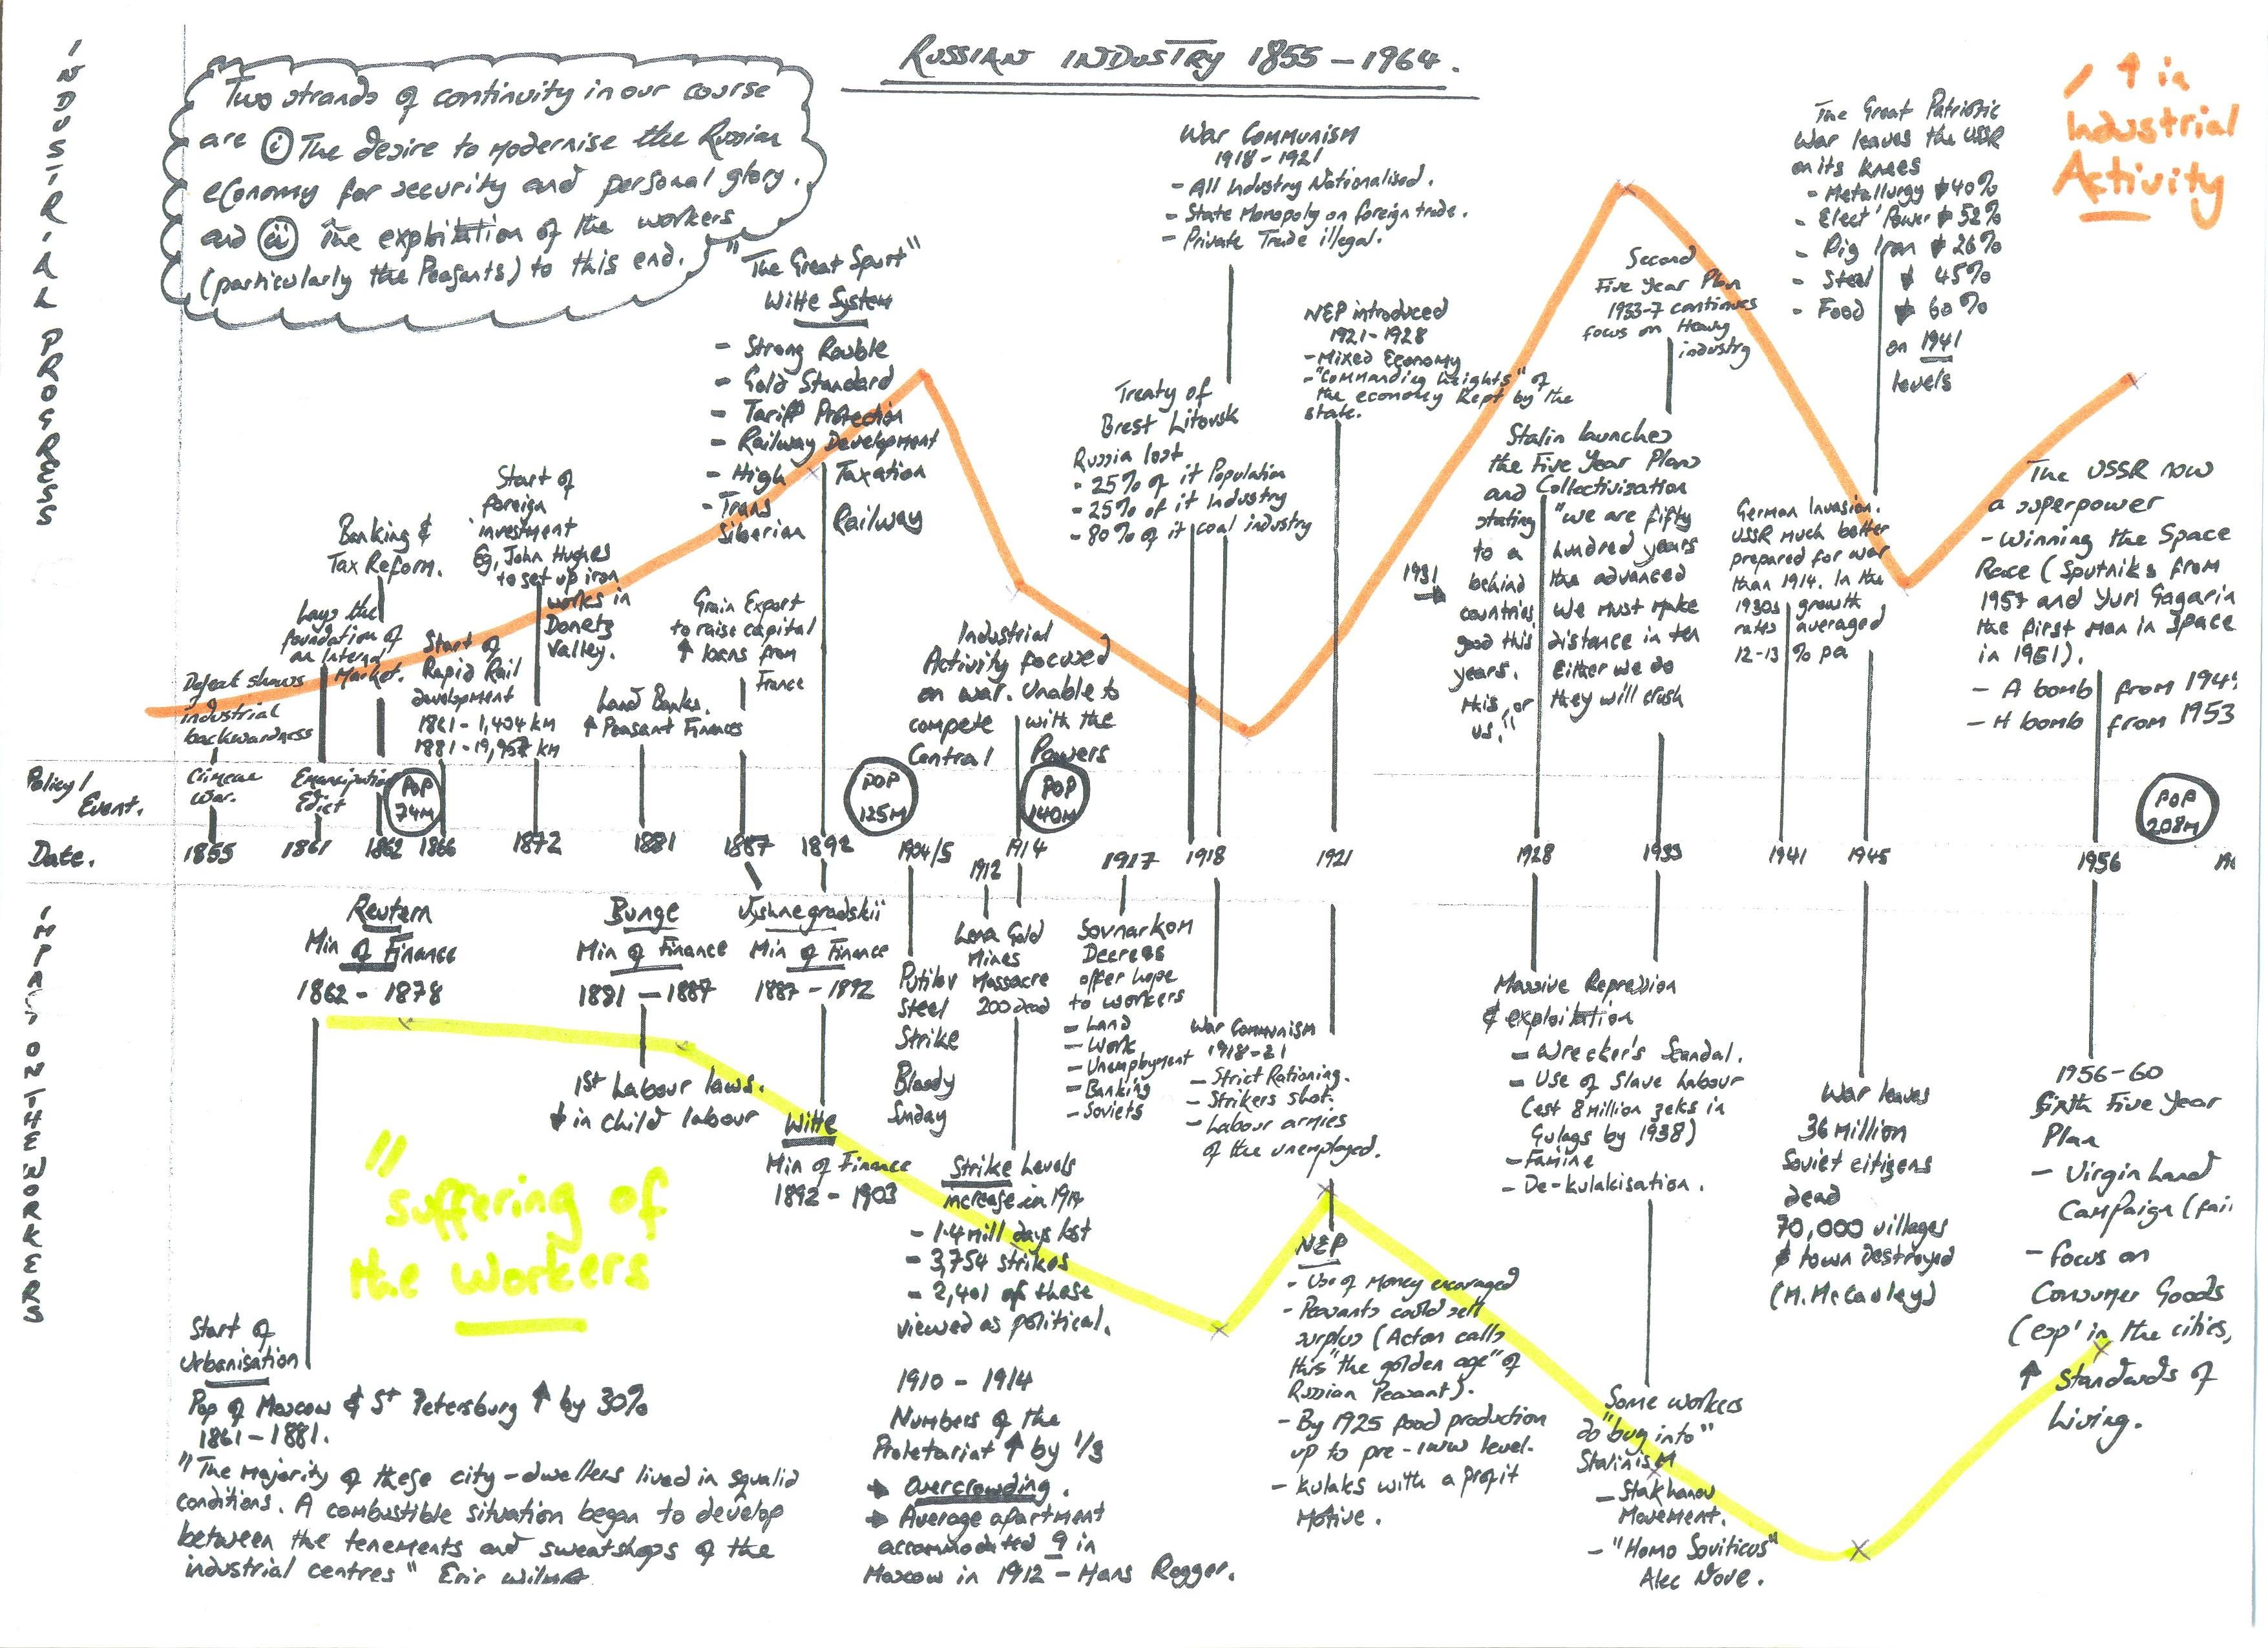 RUSSIAN INDUSTRY 1855-1964.
INDUSTRIAL PROGRESS
Two strands of continuity in our course
are (i) The desire to modernise the Russian
economy for security and personal glory.
and (ii) The exploitation of the workers
(particularly the Peasants) to this end.
↑ in
Industrial
Activity
Defeat shows
industrial
backwardness
Lays the
foundation of
an Internal
Market.
Banking &
Tax Reform.
Start of
Rapid Rail
development
1861-1,404 km
1881-19,957 km
Start of
foreign
investment
Eg, John Hughes
to set up iron
works in
Donetz
Valley.
Land Banks.
↑ Peasant Finances
Grain Export
to raise capital
↑ loans from
France
"The Great Spurt"
Witte System
- Strong Rouble
- Gold Standard
- Tariff Protection
- Railway Development
- High Taxation
- Trans
Siberian Railway
Industrial
Activity focused
on war. Unable to
compete with the
Central Powers
Treaty of
Brest Litovsk
Russia lost
- 25% of it Population
- 25% of it Industry
- 80% of it coal industry
War Communism
1918-1921
- All Industry Nationalised.
- State Monopoly on foreign trade.
- Private Trade illegal.
NEP introduced
1921-1928
- Mixed Economy
- "Commanding heights" of
the economy kept by the
state.
Stalin launches
the Five Year Plans
and Collectivization
1931 →
stating "we are fifty
to a hundred years
behind the advanced
countries we must make
good this distance in ten
years. Either we do
this, or they will crush
us."
Second
Five Year Plan
1933-7 continues
focus on Heavy
industry
German Invasion.
USSR much better
prepared for war
than 1914. In the
1930s growth
rates averaged
12-13 % pa
The Great Patriotic
War leaves the USSR
on its knees
- Metallurgy ↓ 40%
- Elect' Power ↓ 52%
- Pig Iron ↓ 26%
- Steel ↓ 45%
- Food ↓ 60%
on 1941
levels
The USSR now
a superpower
- Winning the Space
Race (Sputniks from
1957 and Yuri Gagarin
the first man in space
in 1961).
- A bomb from 1949
- H bomb from 1953
Policy/
Event.
Crimean
War.
Emancipation
Edict
POP
74M
POP
125M
POP
140M
POP
208M
Date.
1855 1861 1862 1866 1872 1881 1887 1892 1904/5 1912 1914 1917 1918 1921 1928 1933 1941 1945 1956
IMPACT ON THE WORKERS
Reutern
Min of Finance
1862 - 1878
Bunge
Min of Finance
1881 - 1887
1st Labour laws.
↓ in child labour
Vyshnegradskii
Min of Finance
1887 - 1892
Witte
Min of Finance
1892 - 1903
"Suffering of
the Workers
Start of
Urbanisation
Pop of Moscow & St Petersburg ↑ by 30%
1861-1881.
"The majority of these city-dwellers lived in squalid
conditions. A combustible situation began to develop
between the tenements and sweatshops of the
industrial centres" Eric
Putilov
Steel
Strike
Bloody
Sunday
Lena Gold
Mines
Massacre
200 dead
Strike Levels
increase in 1914
- 1.4 mill days lost
- 3,754 strikes
- 2,401 of these
viewed as political.
1910 - 1914
Numbers of the
Proletariat ↑ by 1/3
→ Overcrowding.
→ Average apartment
accommodated 9 in
Moscow in 1912 - Hans Rogger.
Sovnarkom
Decrees
offer hope
to workers
- Land
- Work
- Unemployment
- Banking
- Soviets
War Communism
1918-21
- Strict Rationing.
- Strikers shot.
- Labour armies
of the unemployed.
NEP
- Use of Money encouraged
- Peasants could sell
surplus (Acton calls
this "the golden age" of
Russian Peasant).
- By 1925 food production
up to pre-1WW level.
- Kulaks with a profit
Motive.
Massive Repression
& exploitation
- Wrecker's Scandal.
- Use of Slave Labour
(est 8 Million zeks in
Gulags by 1938)
- Famine
- De-kulakisation.
Some workers
do "buy into"
Stalinism
- Stakhanov
Movement.
- "Homo Soviticus"
Alec Nove.
War leaves
36 Million
Soviet citizens
dead
70,000 villages
& town destroyed
(M.McCauley)
1956-60
Sixth Five Year
Plan
- Virgin Land
Campaign (fail
- focus on
Consumer Goods
(esp' in the cities,
↑ Standards of
living.